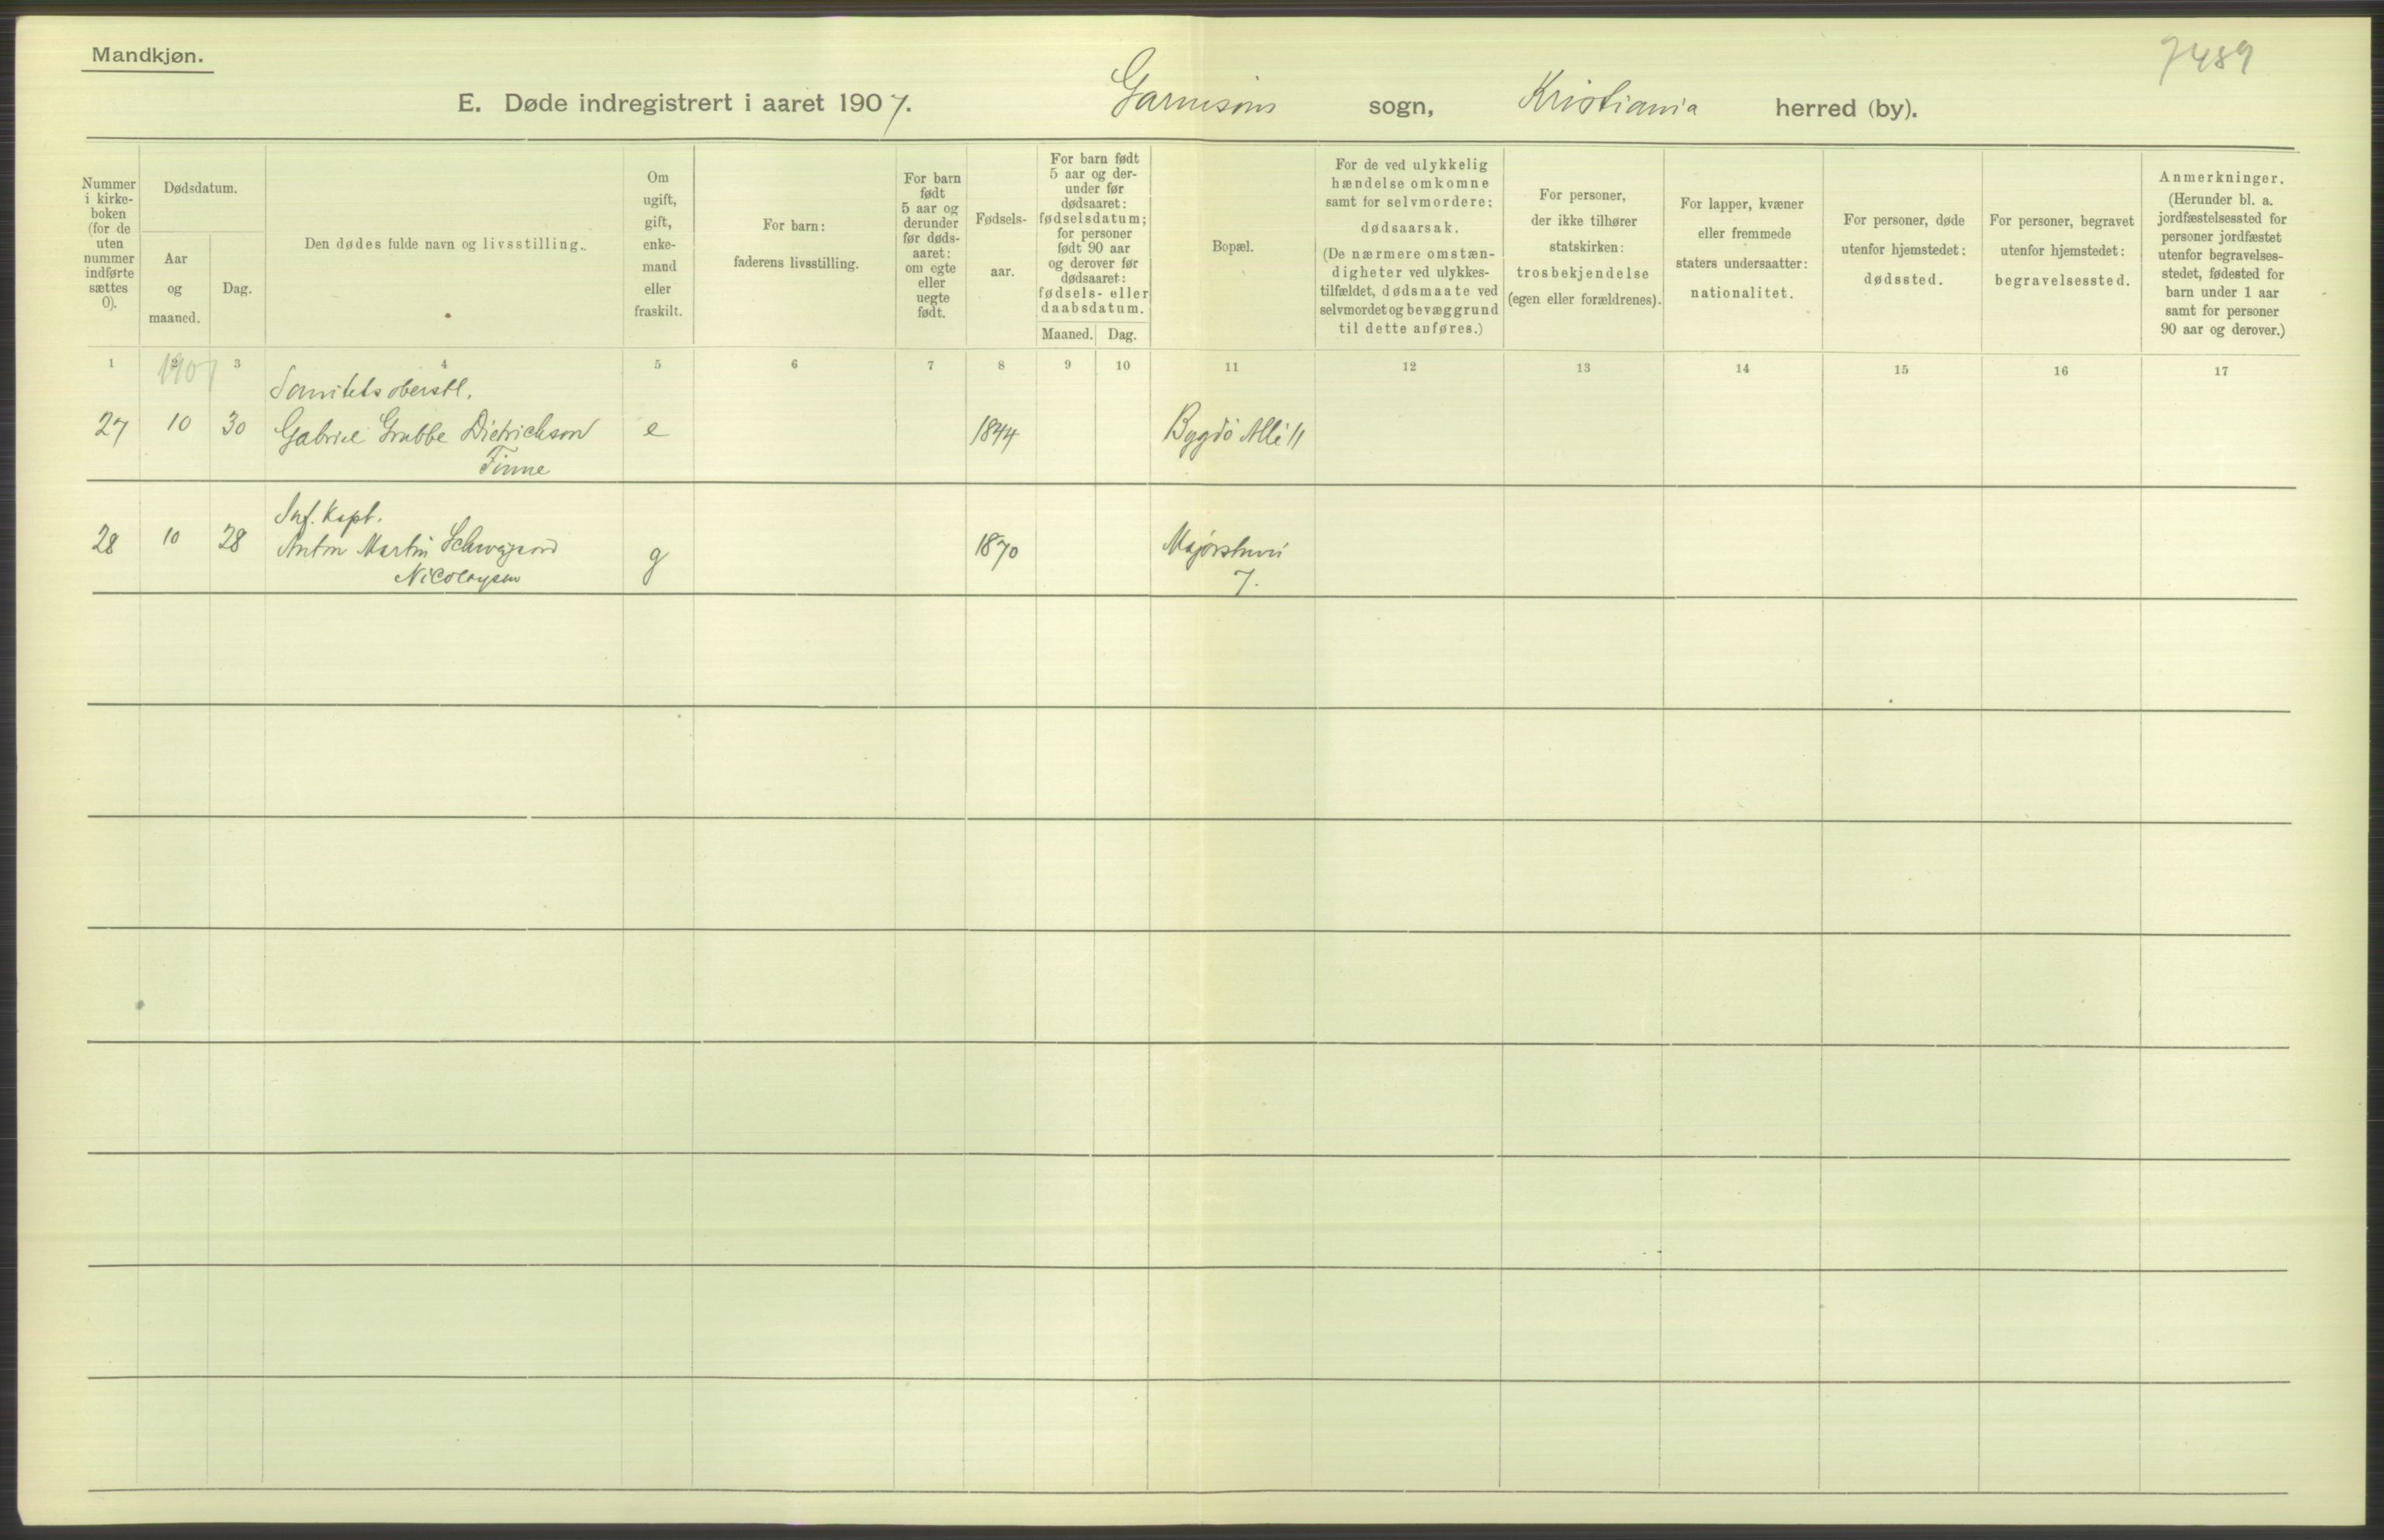 Mandkjøn.
7489
E. Døde indregistrert i aaret 1907. Garnisons sogn, Kristiania herred (by).
Nummer
i kirke-
boken
(for de
uten
nummer
indførte
sættes
0).
Dødsdatum.
Aar
og
maaned.
Dag.
Den dødes fulde navn og livsstilling.
Om
ugift,
gift,
enke-
mand
eller
fraskilt.
For barn:
faderens livsstilling.
For barn
født
5 aar og
derunder
før døds-
aaret:
om egte
eller
uegte
født.
Fødsels-
aar.
For barn født
5 aar og der-
under før
dødsaaret:
fødselsdatum;
for personer
født 90 aar
og derover før
dødsaaret:
fødsels- eller
daabsdatum.
Maaned.
Dag.
Bopæl.
For de ved ulykkelig
hændelse omkomne
samt for selvmordere:
dødsaarsak.
(De nærmere omstæn-
digheter ved ulykkes-
tilfældet, dødsmaate ved
selvmordet og bevæggrund
til dette anføres.)
For personer,
der ikke tilhører
statskirken:
trosbekjendelse
(egen eller forældrenes).
For lapper, kvæner
eller fremmede
staters undersaatter:
nationalitet.
For personer, døde
utenfor hjemstedet:
dødssted.
For personer, begravet
utenfor hjemstedet:
begravelsessted.
Anmerkninger.
(Herunder bl. a.
jordfæstelsessted for
personer jordfæstet
utenfor begravelses-
stedet, fødested for
barn under 1 aar
samt for personer
90 aar og derover.)
1 2 3 4 5 6 7 8 9 10 11 12 13 14 15 16 17
1907
Sanitetsoberstl.
27 10 30 Gabriel Grubbe Dietrichson e 1844 Bygdö Allé 11
Finne
Inf. Kapt.
28 10 28 Anton Martin Schweigaard g 1870 Majorstuvei
Nicolaysen 7.